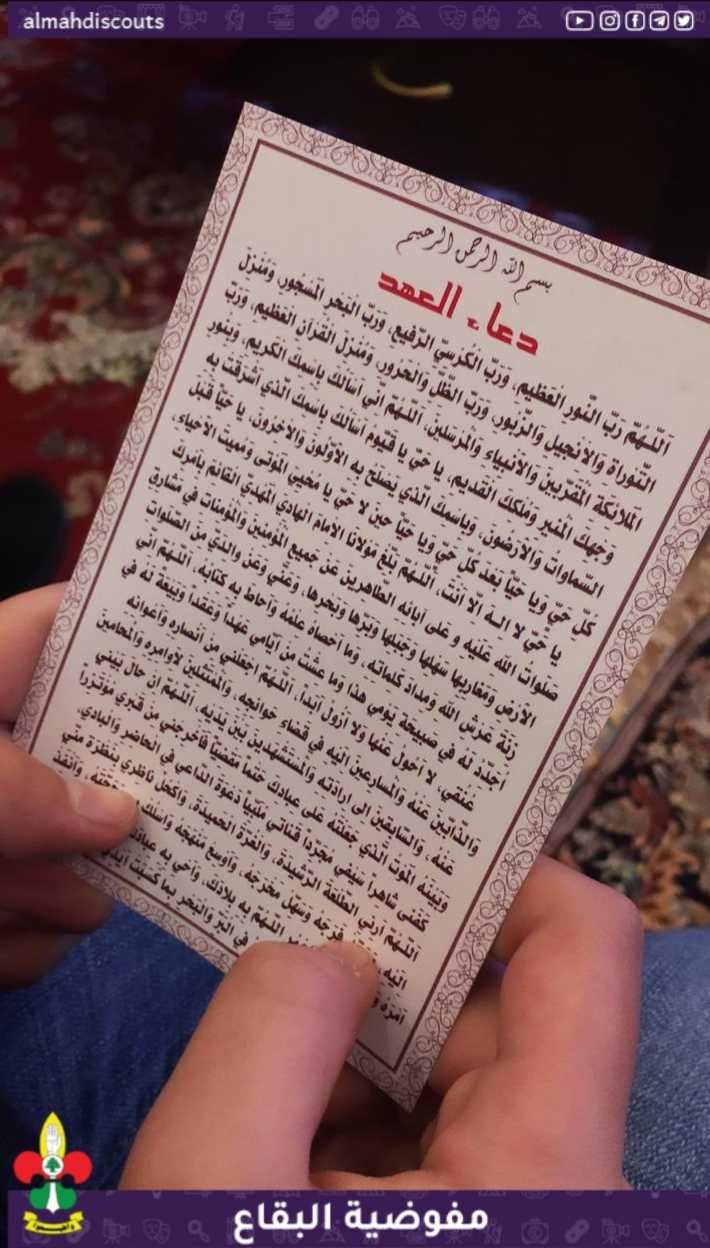 almahdiscouts
بسم الله الرحمن الرحيم
دعاء العهد
اَللّـهُمَّ رَبَّ النُّورِ الْعَظيمِ، وَرَبَّ الْكُرْسِيِّ الرَّفيعِ، وَرَبَّ الْبَحْرِ الْمَسْجُورِ، وَمُنْزِلَ
التَّوْراةِ وَالْاِنْجيلِ وَالزَّبُورِ، وَرَبَّ الظِّلِّ وَالْحَرُورِ، وَمُنْزِلَ الْقُرْآنِ الْعَظيمِ، وَرَبَّ
الْمَلائِكَةِ الْمُقَرَّبينَ وَالْاَنْبِياءِ وَالْمُرْسَلينَ، اَللّـهُمَّ اِنّي اَسْاَلُكَ بِاسْمِكَ الْكَريمِ، وَبِنُورِ
وَجْهِكَ الْمُنيرِ وَمُلْكِكَ الْقَديمِ، يا حَيُّ يا قَيُّومُ اَسْاَلُكَ بِاسْمِكَ الَّذي اَشْرَقَتْ بِهِ
السَّماواتُ وَالْاَرَضُونَ، وَبِاسْمِكَ الَّذي يَصْلَحُ بِهِ الْاَوَّلُونَ وَالْآخِرُونَ، يا حَيّاً قَبْلَ
كُلِّ حَيٍّ وَيا حَيّاً بَعْدَ كُلِّ حَيٍّ وَيا حَيّاً حينَ لا حَيَّ يا مُحْيِيَ الْمَوْتى وَمُميتَ الْاَحْياءِ،
يا حَيُّ لا اِلـهَ اِلّا اَنْتَ، اَللّـهُمَّ بَلِّغْ مَوْلانَا الْاِمامَ الْهادِيَ الْمَهْدِيَّ الْقائِمَ بِاَمْرِكَ
صَلَواتُ اللهِ عَلَيْهِ و عَلى آبائِهِ الطّاهِرينَ عَنْ جَميعِ الْمُؤْمِنينَ وَالْمُؤْمِناتِ في مَشارِقِ
الْاَرْضِ وَمَغارِبِها سَهْلِها وَجَبَلِها وَبَرِّها وَبَحْرِها، وَعَنّي وَعَنْ والِدَيَّ مِنَ الصَّلَواتِ
زِنَةَ عَرْشِ اللهِ وَمِدادَ كَلِماتِهِ، وَما اَحْصاهُ عِلْمُهُ وَاَحاطَ بِهِ كِتابُهُ، اَللّـهُمَّ اِنّي
اُجَدِّدُ لَهُ في صَبيحَةِ يَوْمي هذا وَما عِشْتُ مِنْ اَيّامي عَهْداً وَعَقْداً وَبَيْعَةً لَهُ في
عُنُقي، لا اَحُولُ عَنْها وَلا اَزُولُ اَبَداً، اَللّـهُمَّ اجْعَلْني مِنْ اَنْصارِهِ وَاَعْوانِهِ
وَالذّابّينَ عَنْهُ وَالْمُسارِعينَ اِلَيْهِ في قَضاءِ حَوائِجِهِ، وَالْمُمْتَثِلينَ لِاَوامِرِهِ وَالْمُحامينَ
عَنْهُ، وَالسّابِقينَ اِلى اِرادَتِهِ وَالْمُسْتَشْهَدينَ بَيْنَ يَدَيْهِ، اَللّـهُمَّ اِنْ حالَ بَيْني
وَبَيْنَهُ الْمَوْتُ الَّذي جَعَلْتَهُ عَلى عِبادِكَ حَتْماً مَقْضِيّاً فَاَخْرِجْني مِنْ قَبْري مُؤْتَزِراً
كَفَنى شاهِراً سَيْفي مُجَرِّداً قَناتي مُلَبِّياً دَعْوَةَ الدّاعي فِي الْحاضِرِ وَالْبادي،
اَللّـهُمَّ اَرِنِي الطَّلْعَةَ الرَّشيدَةَ، وَالْغُرَّةَ الْحَميدَةَ، وَاكْحُلْ ناظِري بِنَظْرَة منِّي
اِلَيْهِ، فَرَجَهُ وَسَهِّلْ مَخْرَجَهُ، وَاَوْسِعْ مَنْهَجَهُ وَاسْلُكْ بي مَحَجَّتَهُ، وَاَنْفِذْ
اَمْرَهُ اللّـهُمَّ بِهِ بِلادَكَ، وَاَحْيِ بِهِ عِبادَكَ
فِي الْبَرِّ وَالْبَحْرِ بِما كَسَبَتْ
مفوضية البقاع